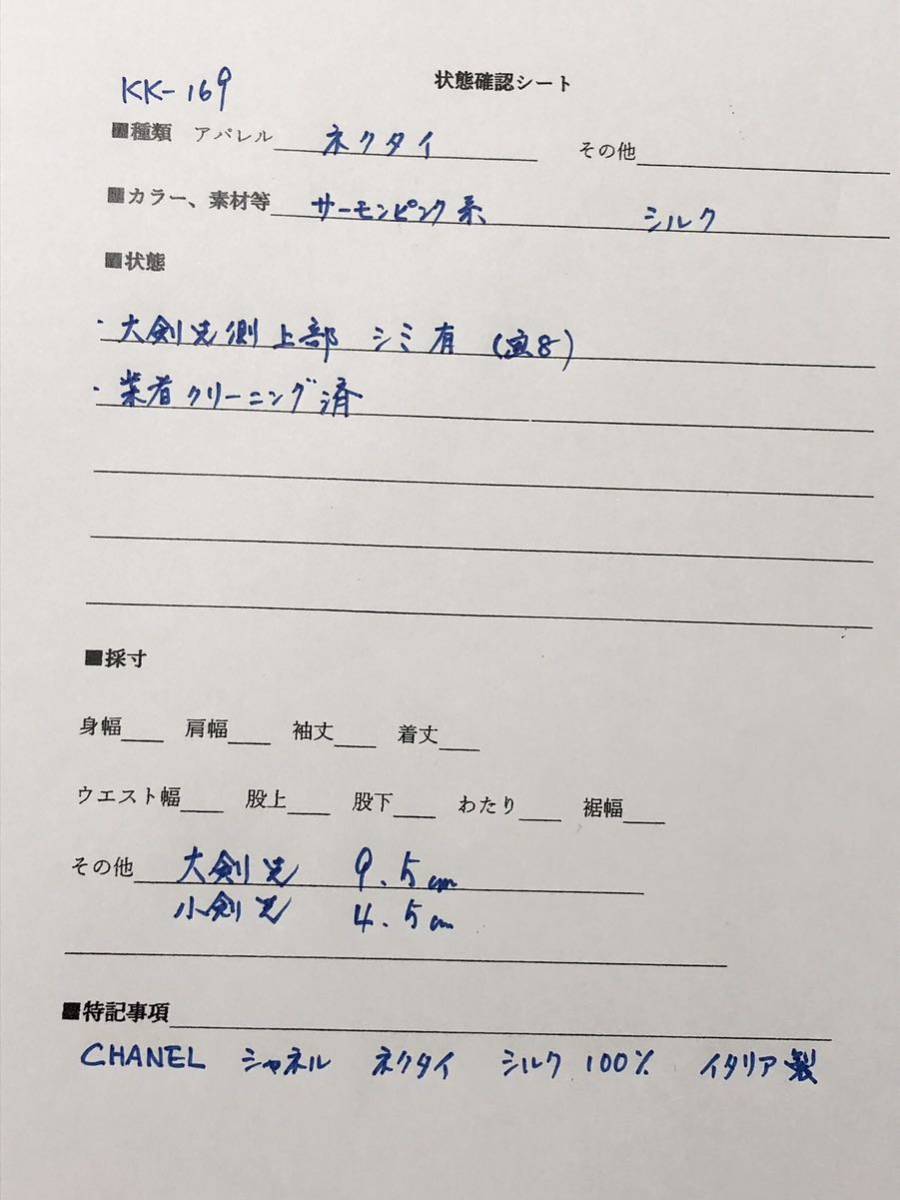 KK-169
状態確認シート
■種類 アパレル ネクタイ その他
■カラー、素材等 サーモンピンク系 シルク
■状態
・大剣先側上部 シミ有 (8)
・業者クリーニング済
■採寸
身幅 肩幅 袖丈 着丈
ウエスト幅 股上 股下 わたり 裾幅
その他 大剣先 9.5cm
小剣先 4.5cm
■特記事項
CHANEL シャネル ネクタイ シルク 100% イタリア製